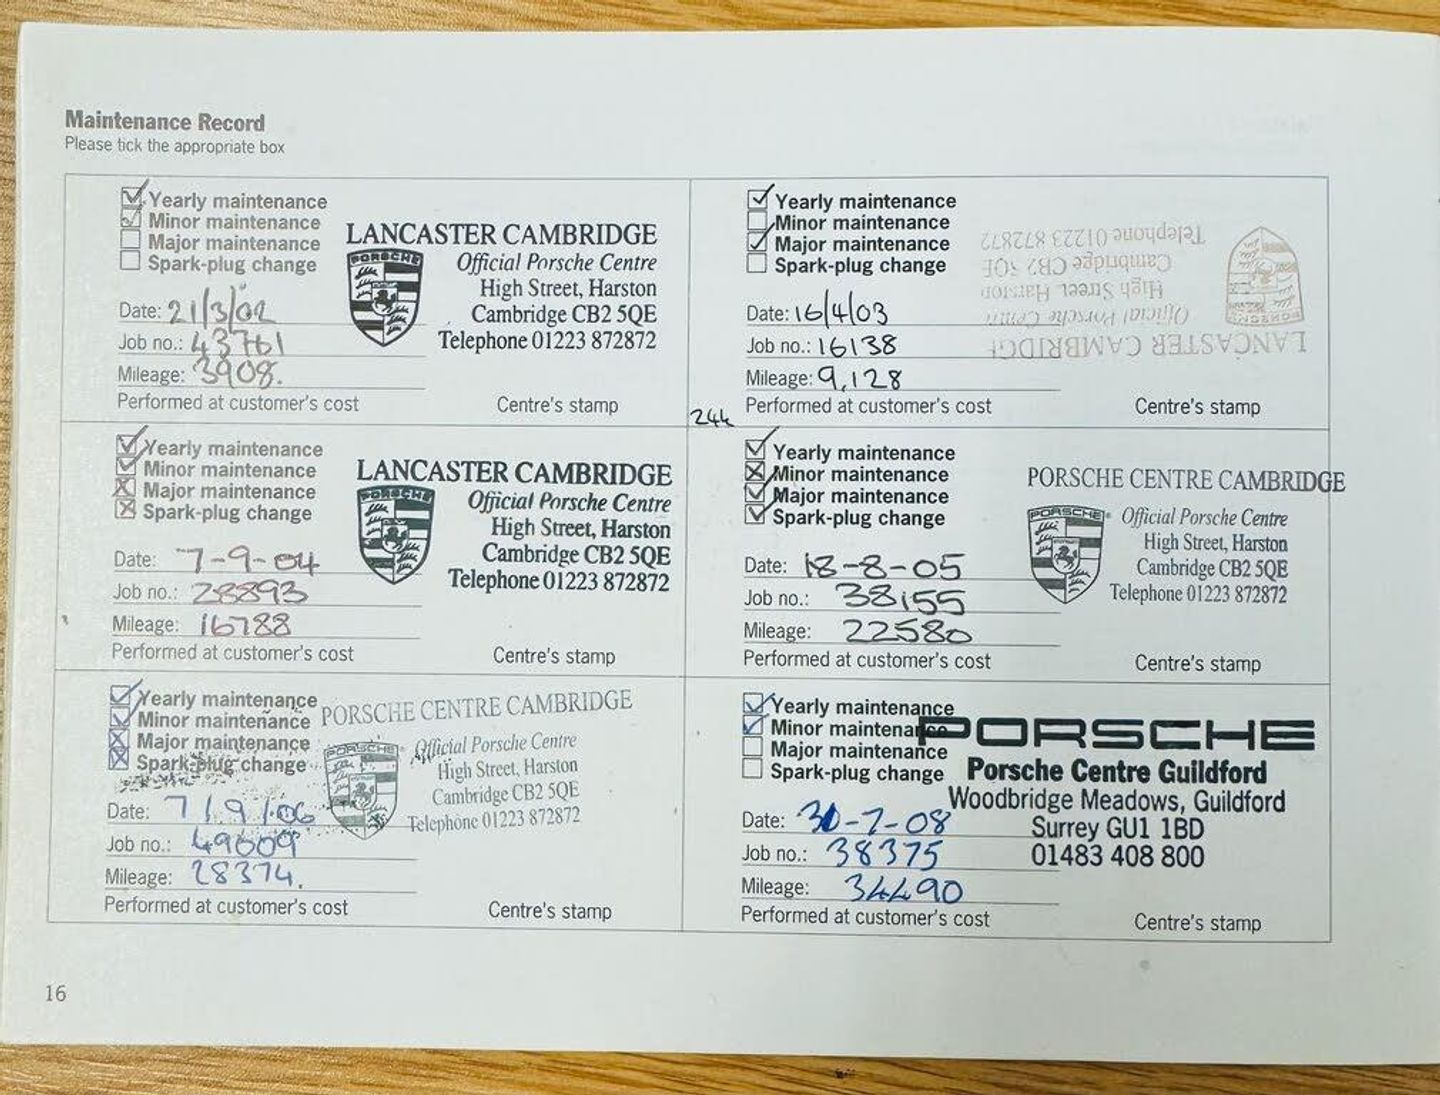 Maintenance Record
Please tick the appropriate box
Yearly maintenance
Minor maintenance
Major maintenance
Spark-plug change
LANCASTER CAMBRIDGE
PORSCHE
Official Porsche Centre
High Street, Harston
Cambridge CB2 5QE
Telephone 01223 872872
Date: 21/3/02
Job no.: 43761
Mileage: 3908.
Performed at customer's cost
Centre's stamp
Yearly maintenance
Minor maintenance
Major maintenance
Spark-plug change
LANCASTER CAMBRIDGE
PORSCHE
Official Porsche Centre
High Street, Harston
Cambridge CB2 5QE
Telephone 01223 872872
Date: 16/4/03
Job no.: 16138
Mileage: 9,128
Performed at customer's cost
Centre's stamp
Yearly maintenance
Minor maintenance
Major maintenance
Spark-plug change
LANCASTER CAMBRIDGE
PORSCHE
Official Porsche Centre
High Street, Harston
Cambridge CB2 5QE
Telephone 01223 872872
Date: 7-9-04
Job no.: 28893
Mileage: 16788
Performed at customer's cost
Centre's stamp
Yearly maintenance
Minor maintenance
Major maintenance
Spark-plug change
PORSCHE CENTRE CAMBRIDGE
PORSCHE
Official Porsche Centre
High Street, Harston
Cambridge CB2 5QE
Telephone 01223 872872
Date: 18-8-05
Job no.: 38155
Mileage: 22580
Performed at customer's cost
Centre's stamp
Yearly maintenance
Minor maintenance
Major maintenance
Spark-plug change
PORSCHE CENTRE CAMBRIDGE
PORSCHE
Official Porsche Centre
High Street, Harston
Cambridge CB2 5QE
Telephone 01223 872872
Date: 7/9/06
Job no.: 49609
Mileage: 28374.
Performed at customer's cost
Centre's stamp
Yearly maintenance
Minor maintenance
Major maintenance
Spark-plug change
PORSCHE
Porsche Centre Guildford
Woodbridge Meadows, Guildford
Surrey GU1 1BD
01483 408 800
Date: 30-7-08
Job no.: 38375
Mileage: 34490
Performed at customer's cost
Centre's stamp
16